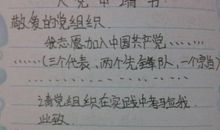 入党申请书
敬爱的党组织
我志愿加入中国共产党……
……(三个代表、两个先锋队、一个宗旨)
请党组织在实践中考验我.
此致